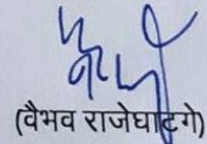 (वैभव राजेघाटगे)